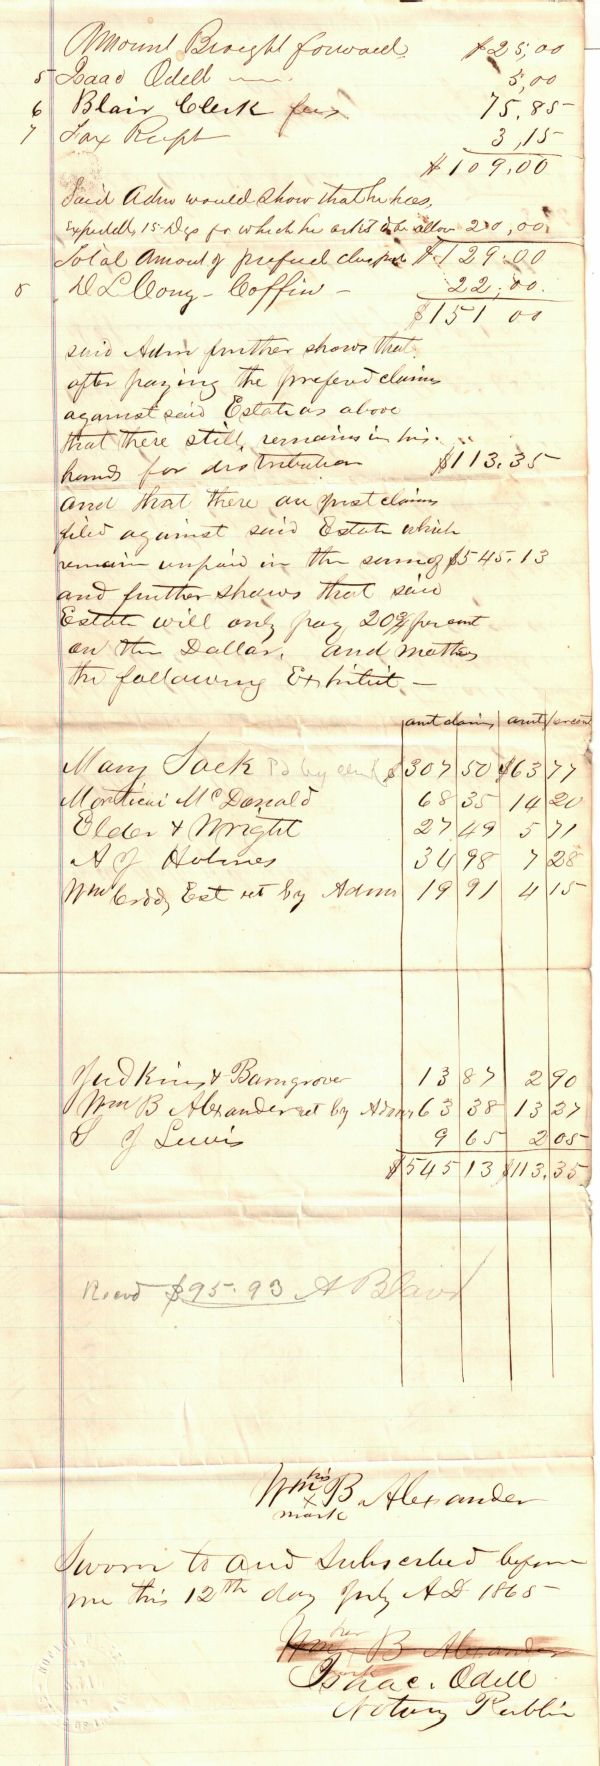 Amount Brought forward. $25,00
5 Isaac Odell 5,00
6 Blair Clerk fees 75,85
7 Tax Recpt 3,15
$109,00
Said Adm would show that he has
Expended 15 Days for which he asks to be allow 20,00
Total Amount of prefured $129.00
8 D L Cony - Coffin - 22,00.
$151 00
said Adm further shows that
after paying the prefered claims
against said Estate as above
that there still remains in his
hands for distribution $113.35
and that there are just claims
filed against said Estate which
remain unpaid in the sum of $545.13
and further shows that said
Estate will only pay 20 per cent
on the Dollar. and makes
the following Exhibit -
amt claims amt percent
Mary Jack Pd by $307 50 $63 77
Mortical McDonald 68 35 14 20
Elder & Wright 27 49 5 71
A J Holmes 34 98 7 28
Wm Est ret by Admr 19 91 4 15
Judkins & Barngrover 13 87 2 90
Wm B Alexander ret by Admr 63 38 13 27
S J Lewis 9 65 2 05
$545 13 $113.35
Recvd $95.93 A Blair
his
Wm B Alexander
x
mark
Sworn to and Subscribed before
me this 12th day July AD 1865
Wm B Alexander
Isaac Odell
Notary Public